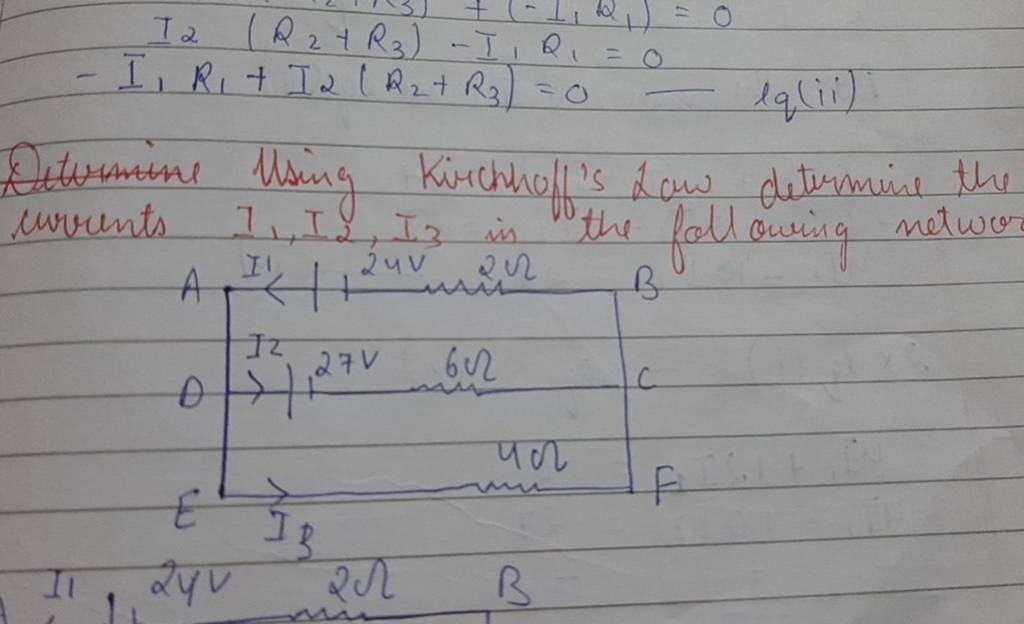 R3) + (-I1 R1) = 0
I2 (R2 + R3) - I1 R1 = 0
- I1 R1 + I2 (R2 + R3) = 0 — eq(ii)
Determine Using Kirchhoff's Law determine the
currents I1, I2, I3 in the following networ
A I1 24V 2Ω B
I2 27V 6Ω
D C
4Ω
E F
I3
I1 24V 2Ω B